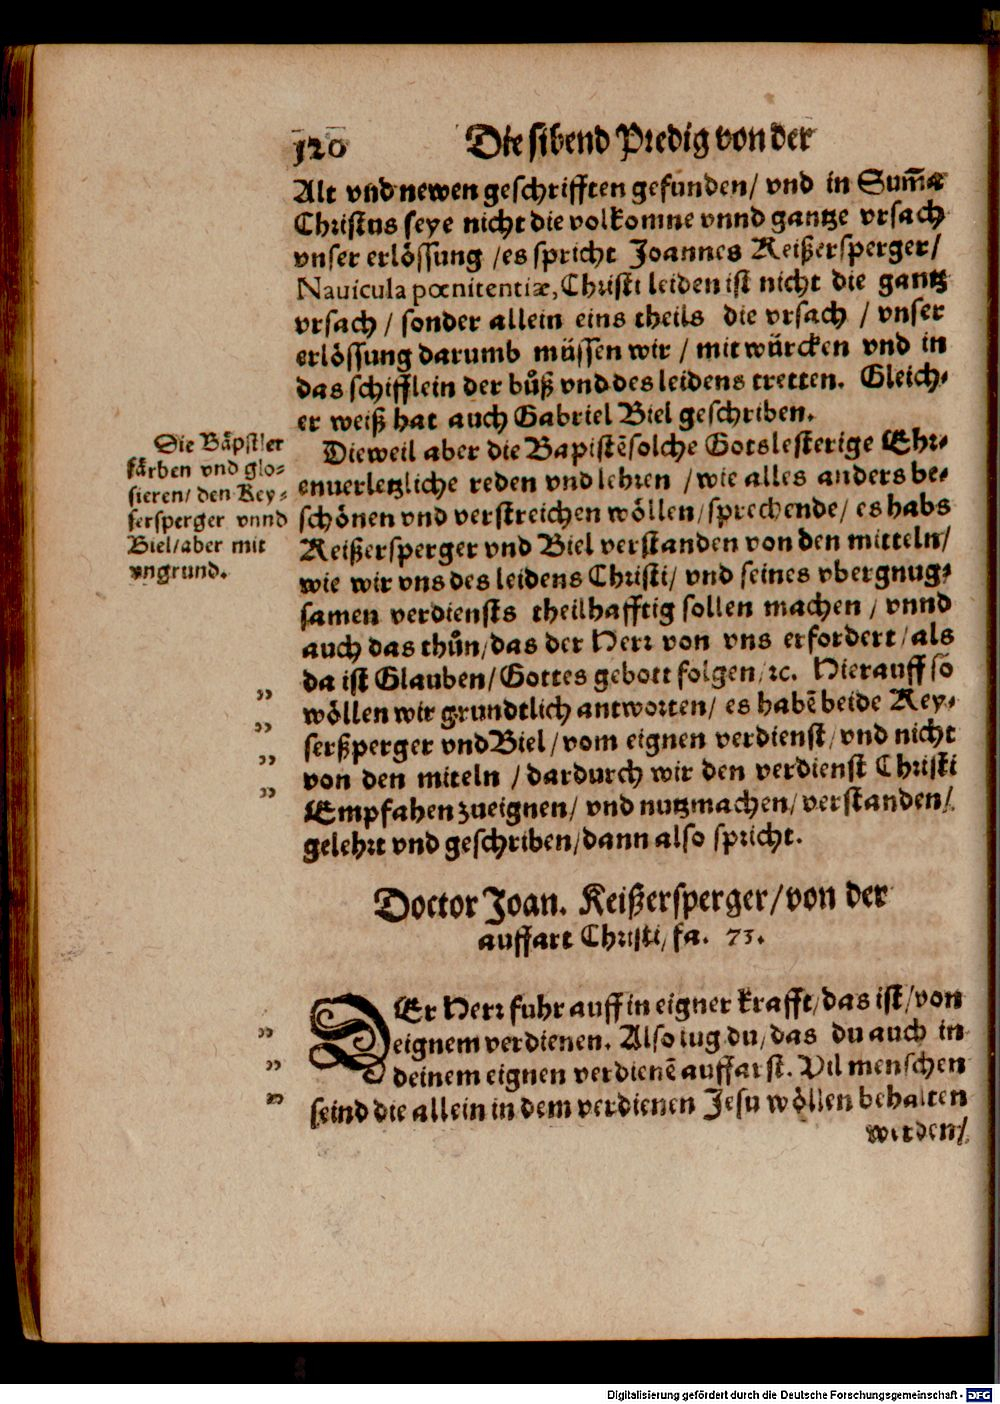 120 Die sibend Predig von der
Alt vnd newen geschrifften gefunden/ vnd in Sum̃a
Christus seye nicht die volkomne vnnd gantze vrsach
vnser erlössung /es spricht Joannes Keißersperger/
Navicula pœnitentiæ, Christi leiden ist nicht die gantz
vrsach / sonder allein eins theils die vrsach / vnser
erlössung darumb müssen wir / mitwürcken vnd in
das schifflein der bůß vnd des leidens tretten. Gleich-
er weiß hat auch Gabriel Biel geschriben.
Die Bäpstler
färben vnd glo-
sieren/ den Key-
sersperger vnnd
Biel/aber mit
vngrund.
Dieweil aber die Bapistẽ solche Gotslesterige Ehr-
enuerletzliche reden vnd lehren /wie alles anders be-
schönen vnd verstreichen wöllen/sprechende/ es habs
Keißersperger vnd Biel verstanden von den mitteln/
wie wir vns des leidens Christi/ vnd seines vbergnug-
samen verdiensts theilhafftig sollen machen / vnnd
auch das thůn/das der Herr von vns erfordert/als
da ist Glauben/Gottes gebott folgen/ꝛc. Hierauff so
wöllen wir grundtlich antworten/ es habẽ beide Key-
serßperger vnd Biel/vom eignen verdienst/vnd nicht
von den miteln /dardurch wir den verdienst Christi
Empfahen zueignen/ vnd nutzmachen/verstanden/
gelehrt vnd geschriben/dann also spricht.
Doctor Joan. Keißersperger/von der
auffart Christi/fa. 73.
DEr Herr fuhr auff in eigner krafft/das ist/von
eignem verdienen. Also lug du/das du auch in
deinem eignen verdienẽ auffarst. Vil menschen
seind die allein in dem verdienen Jesu wöllen behalten
werden/
Digitalisierung gefördert durch die Deutsche Forschungsgemeinschaft - DFG